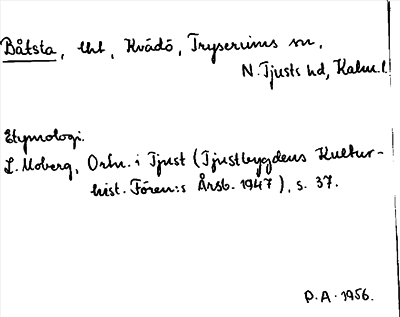 Båtsta, lht, Kvädö, Tryserums sn,
N. Tjusts hd, Kalm. l.
Etymologi.
L. Moberg, Ortn. i Tjust (Tjustbygdens Kultur-
hist. Fören:s Årsb. 1947), s. 37.
P.A. 1956.